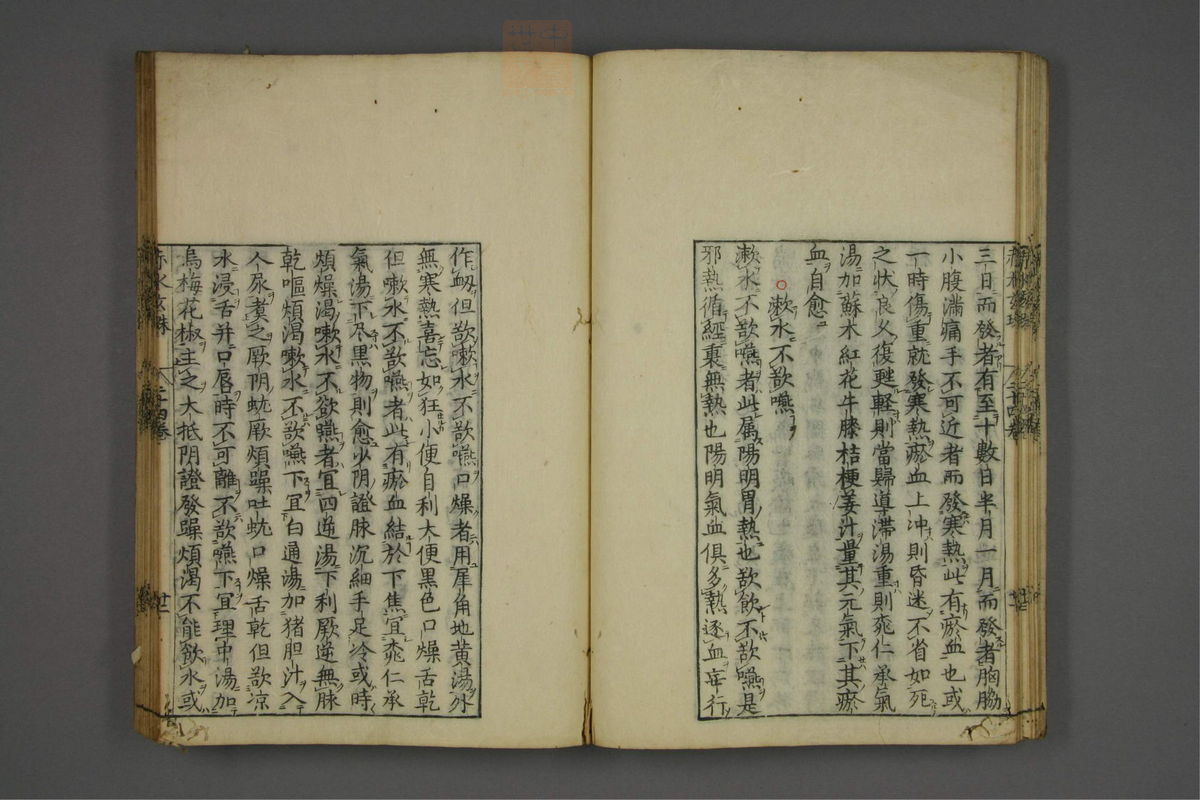 三日而發者有至十數日半月一月而發者胸脇
小腹滿痛手不可近者而發寒熱此有瘀血也或
一時傷重就發寒熱瘀血上冲則昏迷不省如死
之狀良久復甦輕則當歸導滯湯重則桃仁承氣
湯加蘇木紅花牛膝桔梗姜汁量其元氣下其瘀
血自愈
○漱水不欲嚥
漱水不欲嚥者此属陽明胃熱也欲飲不欲嚥是
邪熱循經裏無熱也陽明氣血俱多熱逐血妄行
作衂但欲嗽水不欲嚥口燥者用犀角地黄湯外
無寒熱喜忘如狂小便自利大便黒色口燥舌乾
但嗽水不欲嚥者此有瘀血結於下焦宜桃仁承
氣湯下尽黒物則愈少阴證脉沉細手足冷或時
煩燥渴嗽水不欲嚥者宜四逆湯下利厥逆無脉
乾嘔煩渴嗽水不欲嚥下宜白通湯加猪胆汁入
人尿煑之厥阴蚘厥煩躁吐蚘口燥舌乾但欲凉
水浸舌并口唇時不可離不欲嚥下宜理中湯加
烏梅花椒主之大抵阴證發躁煩渴不能飲水或
赤水玄珠
二十四卷
廿二